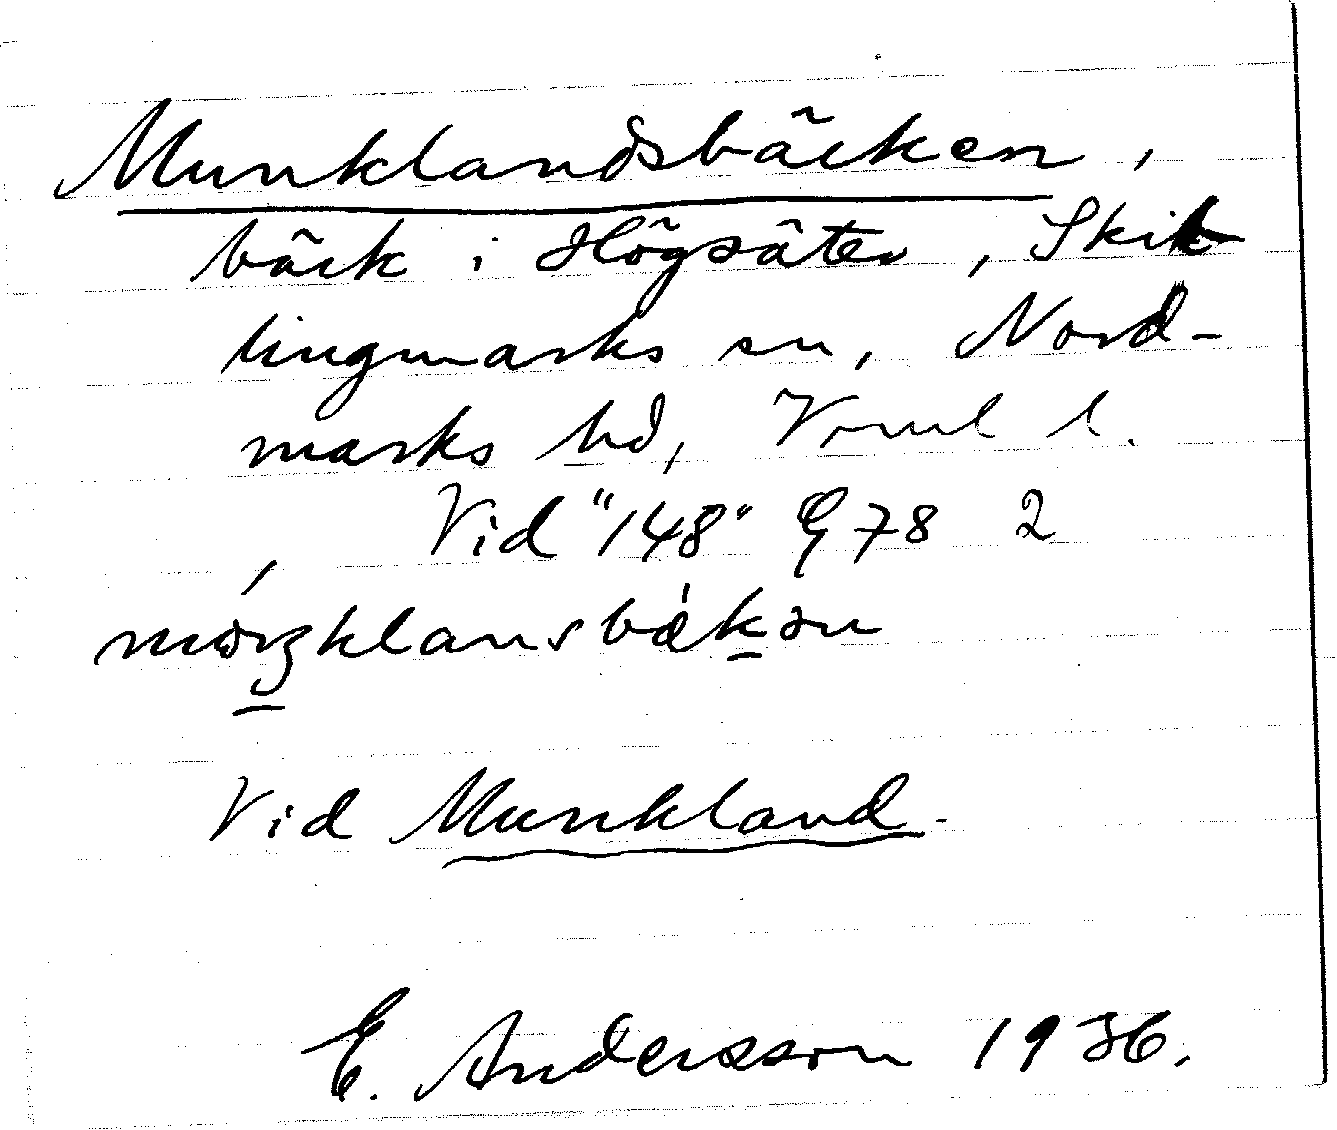 Munklandsbäcken,
bäck i Högsäter, Skil
lingmarks sn, Nord-
marks hd, Vrml l.
Vid "148" G 78 2
Vid Munkland.
E. Andersson 1936.